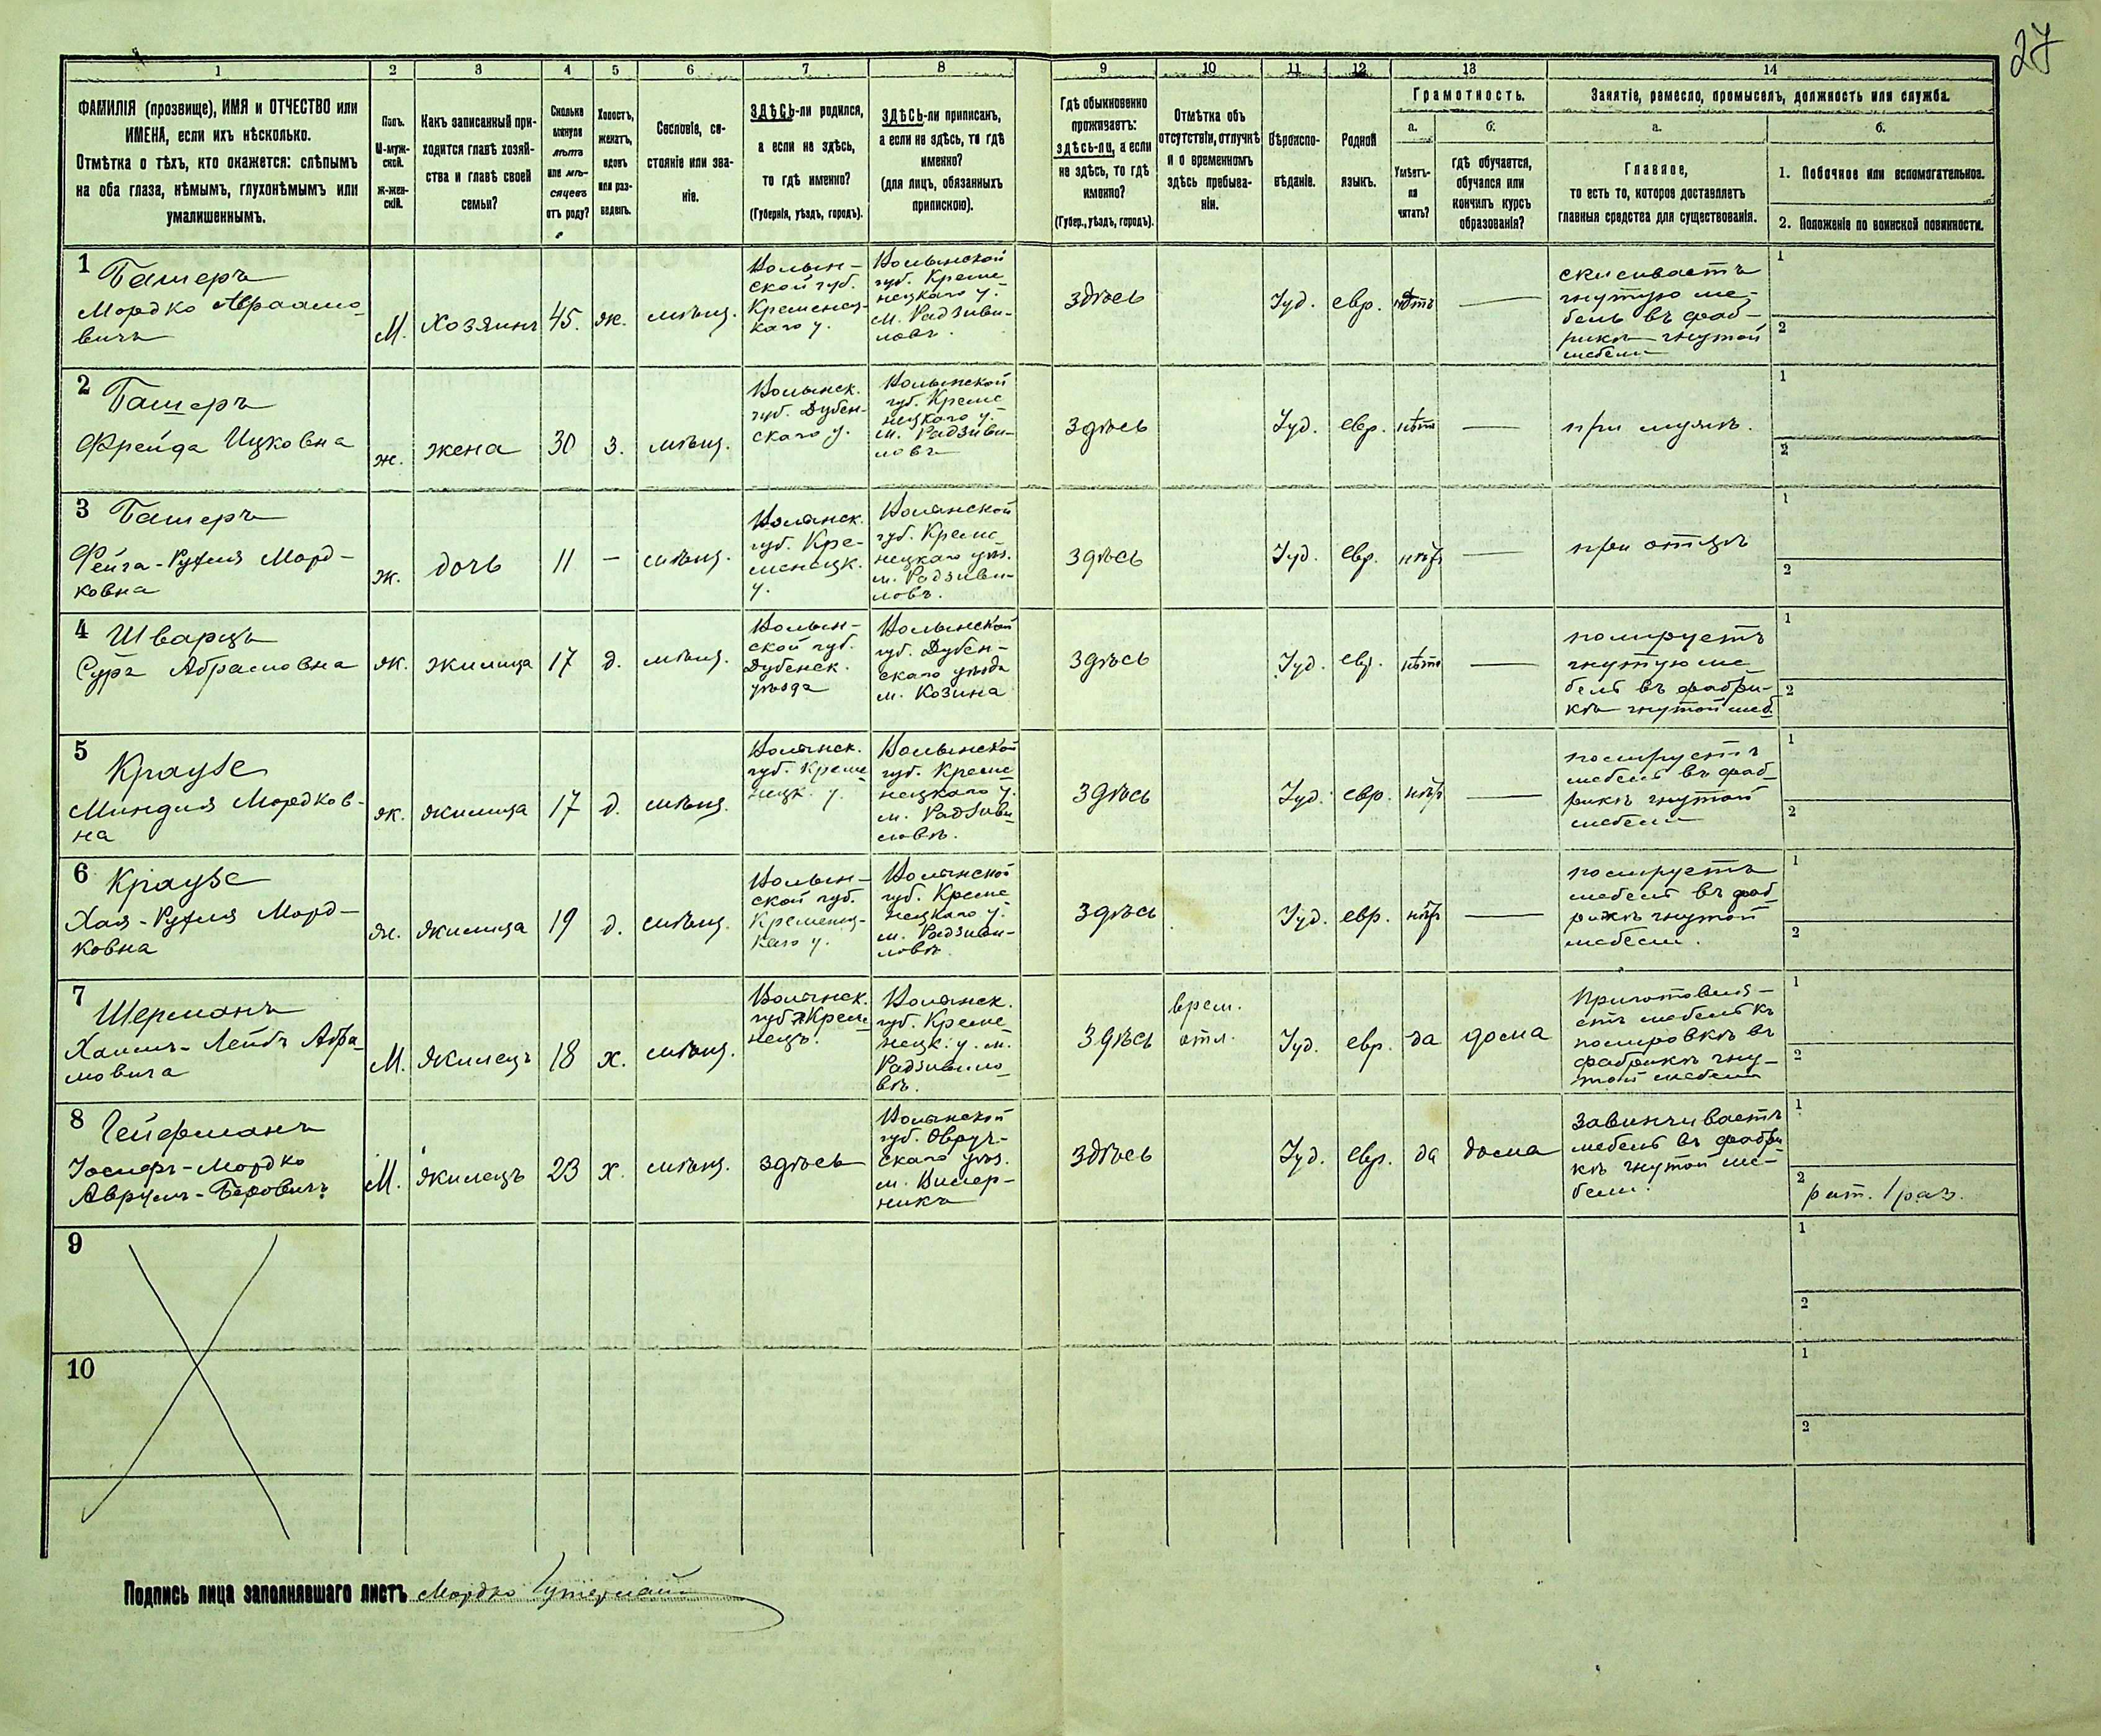 27
1 2 3 4 5 6 7 8 9 10 11 12 13 14
ФАМИЛІЯ (прозвище), ИМЯ и ОТЧЕСТВО или
ИМЕНА, если ихъ нѣсколько.
Отмѣтка о тѣхъ, кто окажется: слѣпымъ
на оба глаза, нѣмымъ, глухонѣмымъ или
умалишеннымъ.
Полъ.
М-муж-
ской.
Ж-жен-
скій.
Какъ записанный при-
ходится главѣ хозяй-
ства и главѣ своей
семьи?
Сколько
минуло
лѣтъ
или мѣ-
сяцевъ
отъ роду?
Холостъ,
женатъ,
вдовъ
или раз-
веденъ.
Сословіе, со-
стояніе или зва-
ніе.
ЗДѢСЬ-ли родился,
а если не здѣсь,
то гдѣ именно?
(Губернія, уѣздъ, городъ).
ЗДѢСЬ-ли приписанъ,
а если не здѣсь, то гдѣ
именно?
(для лицъ, обязанныхъ
припискою).
Гдѣ обыкновенно
проживаетъ:
здѣсь-ли, а если
не здѣсь, то гдѣ
именно?
(Губер., уѣздъ, городъ).
Отмѣтка объ
отсутствіи, отлучкѣ
и о временномъ
здѣсь пребыва-
ніи.
Вѣроиспо-
вѣданіе.
Родной
языкъ.
Грамотность.
а.
Умѣетъ-
ли
читать?
б.
гдѣ обучается,
обучался или
кончилъ курсъ
образованія?
Занятіе, ремесло, промыселъ, должность или служба.
а.
Главное,
то есть то, которое доставляетъ
главныя средства для существованія.
б.
1. Побочное или вспомогательное.
2. Положеніе по воинской повинности.
1 Башеръ
Мордко Авраамо-
вичъ
М.
Хозяинъ
45.
ж.
мѣщ.
Волын-
ской губ.
Кременец-
каго у.
Волынской
губ. Креме-
нецкаго у.
м. Радзиви-
ловъ.
здѣсь
Іуд.
евр.
нѣтъ
—
гнутую ме-
бель въ фаб-
рикѣ гнутой
мебели
1
2
2 Башеръ
Фрейда Ицковна
ж.
жена
30
з.
мѣщ.
Волынск.
губ. Дубен-
скаго у.
Волынской
губ. Креме-
нецкаго у.
м. Радзиви-
ловъ
здѣсь
Іуд.
евр.
нѣтъ
—
при мужѣ.
1
2
3 Башеръ
Фейга-Рухля Морд-
ковна
ж.
дочь
11
—
мѣщ.
Волынск.
губ. Кре-
менецк.
у.
Волынской
губ. Креме-
нецкаго уѣз.
м. Радзиви-
ловъ.
здѣсь
Іуд.
евр.
нѣтъ
—
при отцѣ
1
2
4 Шварцъ
Сура Абрамовна
ж.
жилица
17
д.
мѣщ.
Волын-
ской губ.
Дубенск.
уѣзда
Волынской
губ. Дубен-
скаго уѣзда
м. Козина
здѣсь
Іуд.
евр.
нѣтъ
—
полируетъ
гнутую ме-
бель въ фабри-
кѣ гнутой меб.
1
2
5 Краузе
Миндля Мордков-
на
ж.
жилица
17
д.
мѣщ.
Волынск.
губ. Креме-
нецк. у.
Волынской
губ. Креме-
нецкаго у.
м. Радзиви-
ловъ.
здѣсь
Іуд.
евр.
нѣтъ
—
полируетъ
мебель въ фаб-
рикѣ гнутой
мебели
1
2
6 Краузе
Хая-Рухля Морд-
ковна
ж.
жилица
19
д.
мѣщ.
Волын-
ской губ.
Кременец-
каго у.
Волынской
губ. Креме-
нецкаго у.
м. Радзиви-
ловъ
здѣсь
Іуд.
евр.
нѣтъ
—
полируетъ
мебель въ фаб-
рикѣ гнутой
мебели.
1
2
7 Шерманъ
Хаимъ-Лейбъ Абра-
мовича
М.
Жилецъ
18
х.
мѣщ.
Волынск.
губ. Креме-
нецъ.
Волынск.
губ. Креме-
нецк. у. м.
Радзивило-
въ.
здѣсь
врем.
отл.
Іуд.
евр.
да
дома
Приготовля-
етъ мебель къ
полировкѣ въ
фабрикѣ гну-
той мебели
1
2
8 Гейфманъ
Іосифъ-Мордко
Аврумъ-Беровичъ
М.
жилецъ
23
х.
мѣщ.
здѣсь
Волынской
губ. Овруч-
скаго уѣз.
здѣсь
Іуд.
евр.
да
дома
Завинчиваетъ
мебель въ фабри-
кѣ гнутой ме-
бели.
1
2
рат. 1 раз.
9
1
2
10
1
2
Подпись лица заполнявшаго листъ Мордко